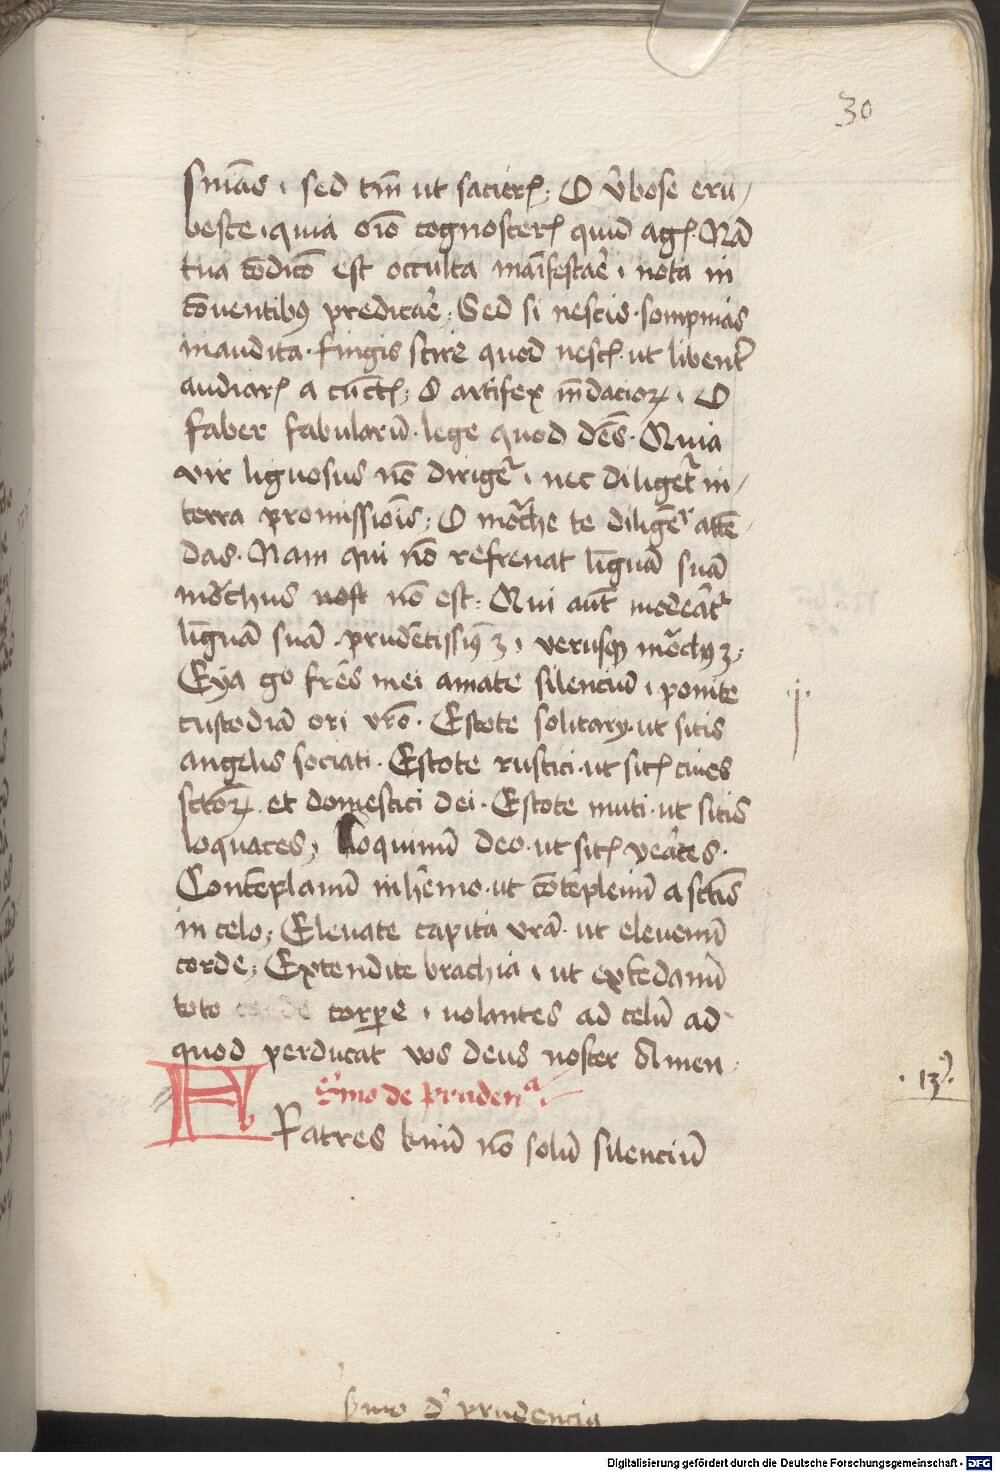 30
smās ı sed tm̄ ut sacieris. O v̓bose eru/
besce ı quia oīo cognosceris quid agis. Nā
tua cōdicō est occulta māifestar̓e ı nota in
cōuentibꝰ predicar̓e. Sed si nescis. sompnias
inaudita. fingis scire quod nescis. ut libent̓
audiaris a cūctis. O artifex mēdacioꝝ ı O
faber fabularū. lege quod dēs. Quia
vir liguosus nō diriget̓ ı nec diliget̓ in/
terra promissiōis. O mōche te diligēt̓ attē
das. Nam qui nō refrenat līguā suā
mōchus nost̓ nō est. Qui aut̄ moder̓at̓
līguā suā. prudētissiꝰ ꝫ ı verusqꝫ mōchꝰ ꝫ.
Eya go frēs mei amate silenciū ı ponite
custodiā ori vr̄o. Estote solitarÿ. ut sitis
angelis sociati. Estote rustici. ut sitis ciues
sctōꝝ. et domestici dei. Estote muti. ut sitis
loquaces. Loquimī deo. ut sitis veātes.
Contēplamī in hēmo. ut cōtēplemī a sctīs
in celo. Eleuate capita vrā. ut eleuemī
corde. Extendite brachia ı ut extēdamī
toto corde corpꝑe ı volantes ad celū ad
quod perducat vos deus noster Amen.
S̓mo de pruden^a.
.13ꝰ.
Fratres kmī nō solū silenciū
s̓mo d̓ prudencia
Digitalisierung gefördert durch die Deutsche Forschungsgemeinschaft - DFG